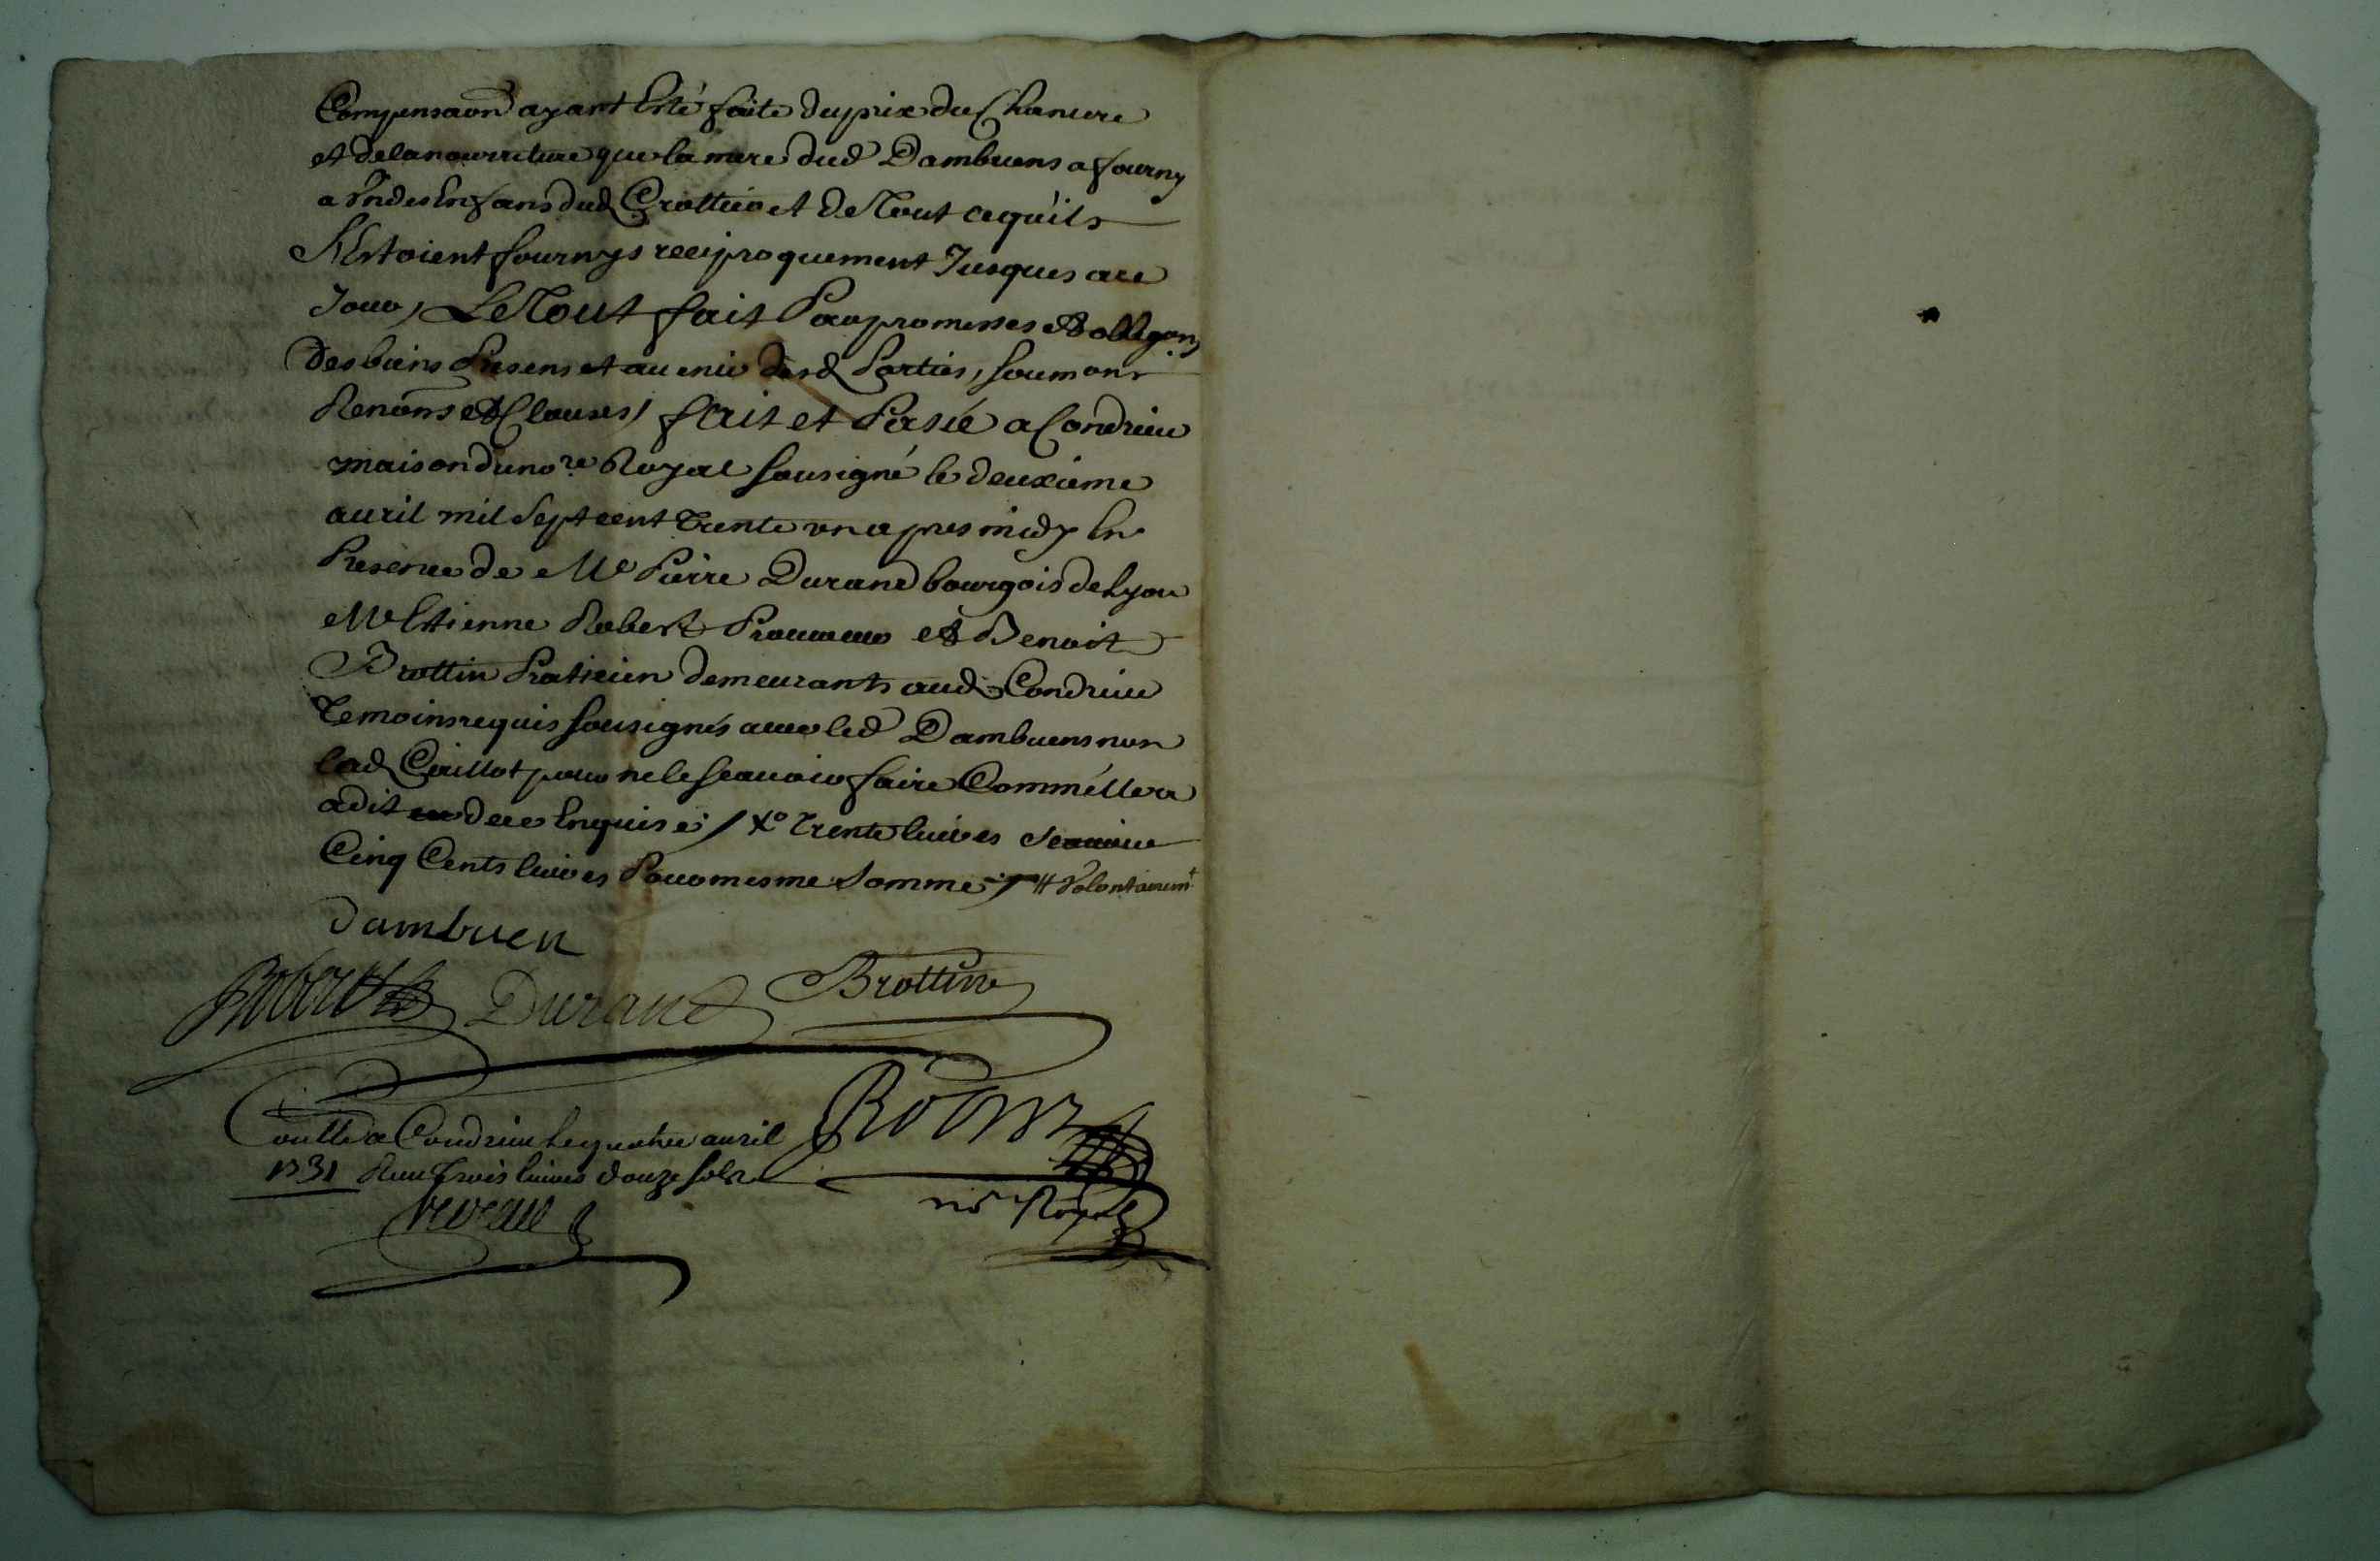 Compensaon ayant Esté faite du prix du Chanure
et de la nourriture que la mere dud Dambuens a fourny
a Un des Enfans dud Crottier et de Tout ce qu'ils
s'Estoient fournys reciproquement Jusques a ce
Jour, Le Tout fait Par promesses et obligaons
des biens Presens et auenir desd Parties, soumons
Renonns et Clauses, fait et Passé a Condrieu
maison du nore Royal sousigné le deuxieme
auril mil sept cent Trente un apres midy En
Presence de Me Pierre Durand bourgois de Lyon
Me Estienne Robert Procureur et Benoit
Brottin Praticien demeurants aud Condrieu
Temoins requis sousignés auec led Dambuens non
lad Caillot pour ne le scauoir faire Comm'Elle a
a dit de ce Enquise / Xo Trente liures
Cinq Cents liures Pour mesme somme // Volontairemt
dambuen
Robert Durand Brottin
Conllé a Condrieu le quatre auril
1731 Receu Trois liures douze sols
nore Royal